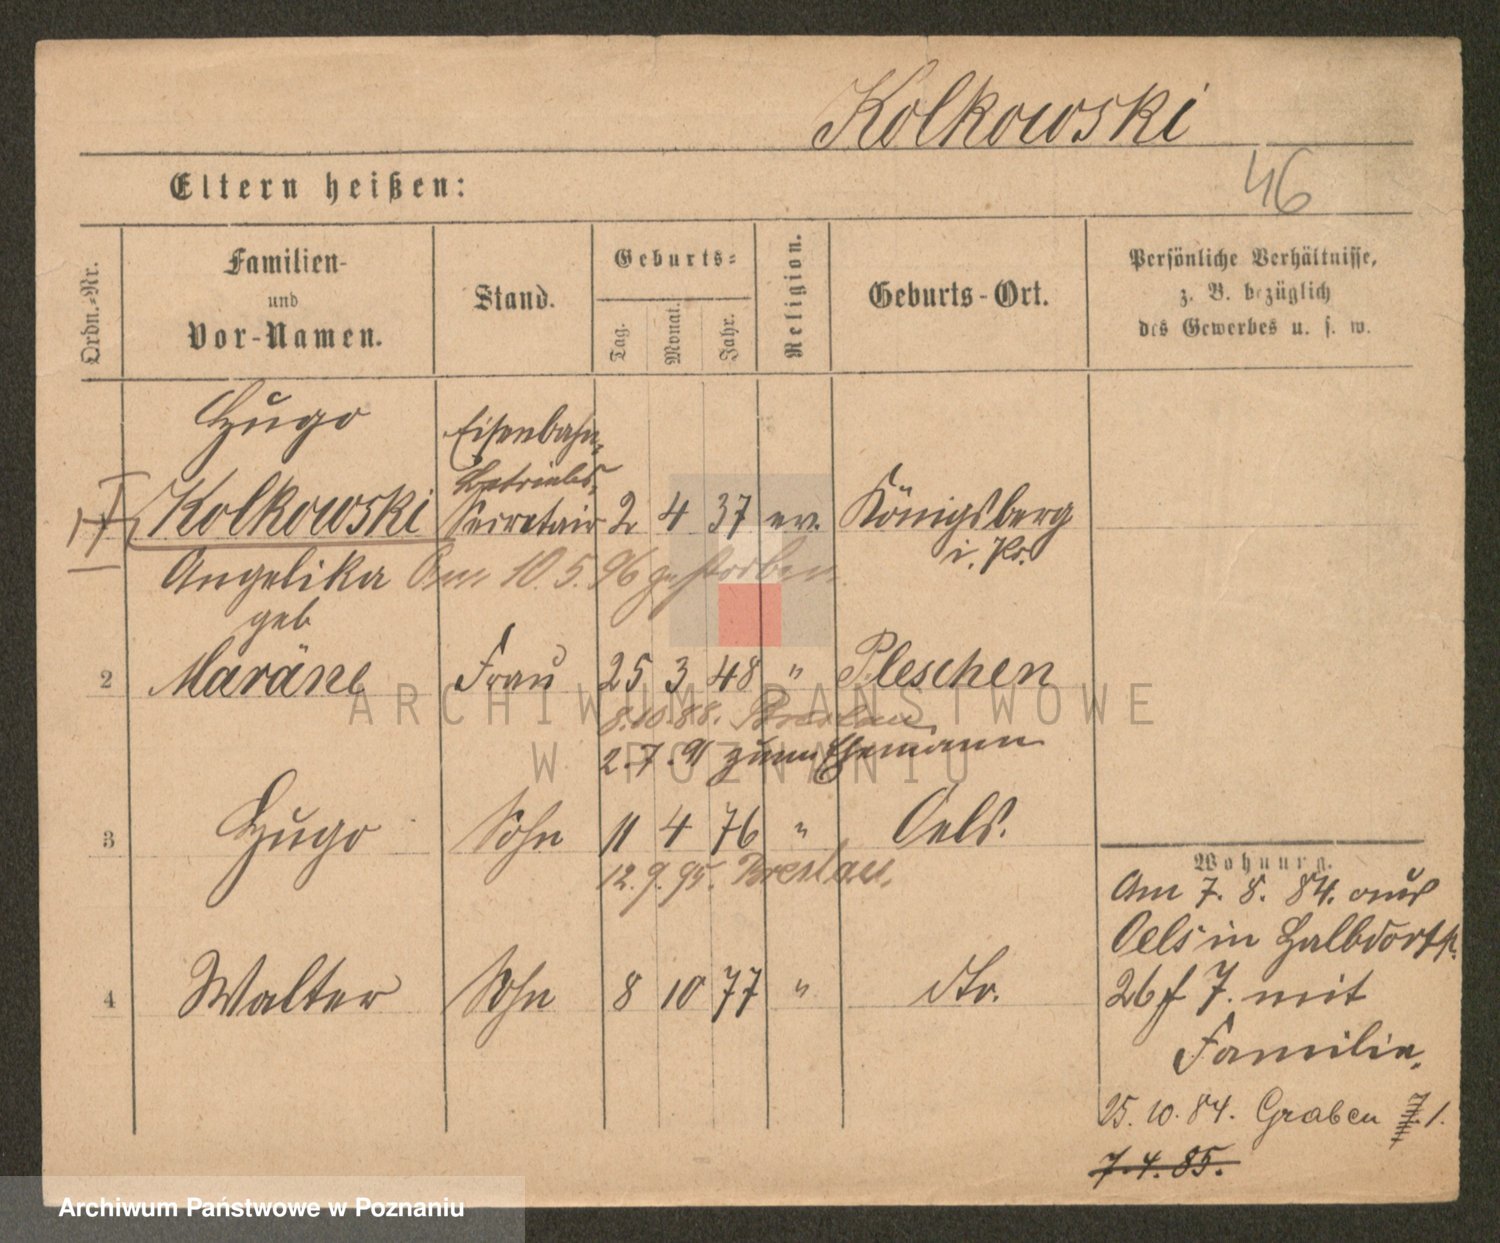 Kolkowski
46
Eltern heißen:
Ordn.-Nr.
Familien-
und
Vor-Namen.
Stand.
Geburts-
Tag.
Monat.
Jahr.
Religion.
Geburts-Ort.
Persönliche Verhältnisse,
z. B. bezüglich
des Gewerbes u. s. w.
Hugo
Kolkowski
Eisenbahn-
Betriebs-
Secretair
2 4 37 ev. Königsberg
i. Pr.
Angelika Am 10.5.96 gestorben
geb
2 Maräne Frau 25 3 48 " Pleschen
8.10.88. Breslau
2.7.91 zum Ehemann
3 Hugo Sohn 11 4 76 " Oels.
12.9.95. Breslau.
4 Walter Sohn 8 10 77 " dto.
Wohnung.
Am 7. 8. 84. aus
Oels in Halbdorfstr.
26 f 7. mit
Familie.
25. 10. 84. Graben 1.
7.4.85.
ARCHIWUM PAŃSTWOWE
W POZNANIU
Archiwum Państwowe w Poznaniu